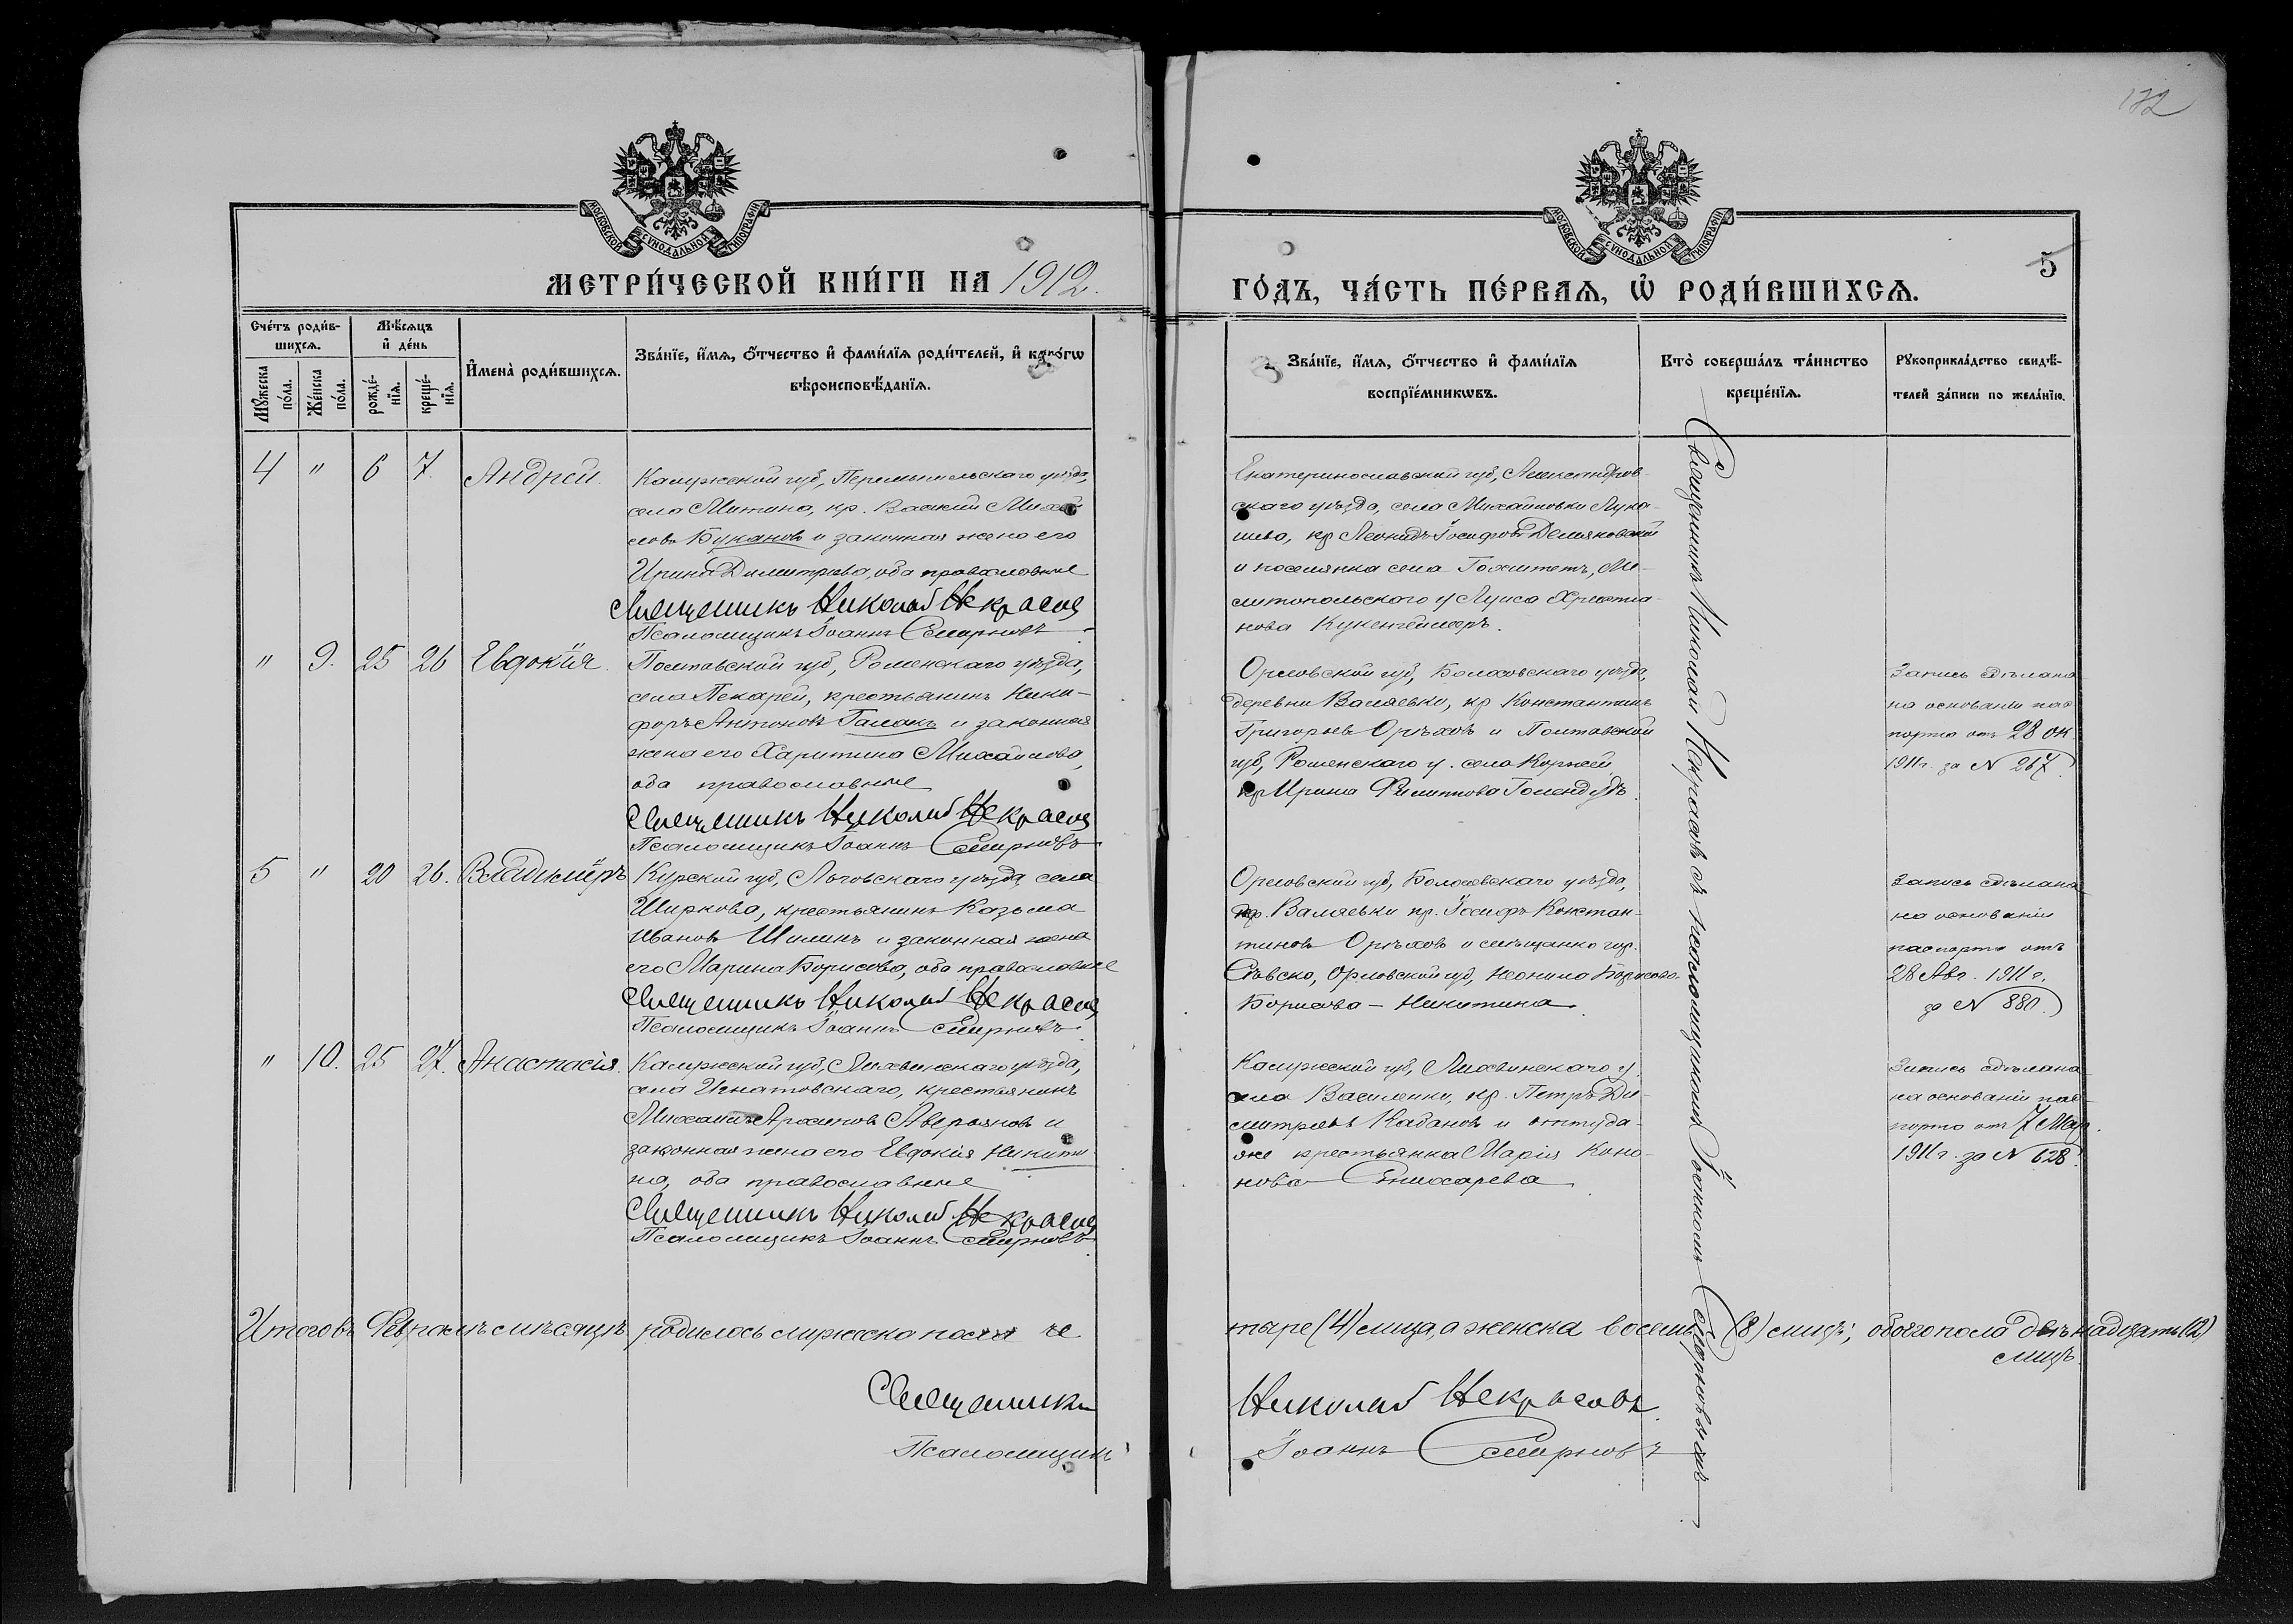 172
МОСКОВСКОЙ СѴНОДАЛЬНОЙ ТИПОГРАФІИ
МОСКОВСКОЙ СѴНОДАЛЬНОЙ ТИПОГРАФІИ
5
МЕТРИ́ЧЕСКОЙ КНИ́ГИ НА 1912.
ГО́ДЪ, ЧА́СТЬ ПЕ́РВАѦ, Ѡ҆ РОДИ́ВШИХСѦ.
Сче́тъ роди́в-
шихсѧ.
Мꙋ́жеска по́ла.
Же́нска по́ла.
Мѣ́сѧцъ
и҆ де́нь
рожде́-
нїѧ.
креще́-
нїѧ.
И҆мена̀ роди́вшихсѧ.
Зва́нїе, и҆́мѧ, ѻ҆́тчество и҆ фами́лїѧ роди́телей, и҆ како́гѡ
вѣроисповѣ́данїѧ.
Зва́нїе, и҆́мѧ, ѻ҆́тчество и҆ фами́лїѧ
воспрїе́мникѡвъ.
Кто̀ соверша́лъ та́инство
креще́нїѧ.
Рꙋкоприкла́дство свидѣ́-
телей за́писи по жела́нїю.
4 " 6 7. Андрей.
Калужской губ, Перемышльскаго уѣзда,
села Митина, кр. Василій Михай
ловъ Букановъ и законная жена его
Ирина Димитріева, оба православные
Священникъ Николай Некрасов
Псаломщикъ Іоаннъ Смирновъ
Екатеринославской губ, Александров-
скаго уѣзда, села Михайловки Лука-
шево, кр Леонидъ Іосифовъ Демяновскій
и поселянка села Гохштетъ, Ме-
литопольского у Луиса Христіа-
нова
" 9. 25 26 Евдокія.
Полтавской губ, Роменскаго уѣзда,
села Пекарей, крестьянинъ Ники-
форъ Антоновъ Галакъ и законная
жена его Харитина Михайлова,
оба православные
Священникъ Николай Некрасов
Псаломщикъ Іоаннъ Смирновъ
Орловской губ, Болховскаго уѣзда,
деревни Валяевки, кр Константинъ
Григорьевъ Орѣховъ и Полтавской
губ, Роменскаго у. села Коржей
кр Ирина Филиппова
Запись сдѣлана
на основаніи пас
порта отъ 28 ок.
1911 г. за N 267.
5 " 20 26. Владиміръ
Курской губ, Льговскаго уѣзда, села
Ширкова, крестьянинъ Козьма
Ивановъ Шилинъ и законная жена
его Марина Борисова, оба православные
Священникъ Николай Некрасов
Псаломщикъ Іоаннъ Смирновъ.
Орловской губ, Болховскаго уѣзда,
дер. Валяевки кр. Іосифъ Констан-
тиновъ Орѣховъ и мѣщанка гор.
Сѣвска, Орловской губ, Неонила Борисова
Борисова - Никитина
Запись сдѣлана
на основаніи
паспорта отъ
28 Авг. 1911 г.
за N 880.
" 10. 25 27. Анастасія.
Калужской губ, Лихвинскаго уѣзда,
села Игнатовскаго, крестьянинъ
Михаилъ Архиповъ Аверьяновъ и
законная жена его Евдокія Никити
на, оба православные
Священникъ Николай Некрасов
Псаломщикъ Іоаннъ Смирновъ.
Калужской губ, Лихвинскаго у.
села Василенки, кр. Петръ Ди-
митріевъ Кабановъ и оттуда-
же крестьянка Марія Коно-
нова Енихарева
Запись сдѣлана
на основаніи пас-
порта отъ 7 Мар.
1911 г. за N 628.
Священникъ Николай Некрасовъ съ псаломщикомъ Іоанномъ Смирновымъ
Итого въ Февралѣ мѣсяцѣ родилось мужеска пола че
тыре (4) лица, а женска восемь (8) лицъ; обоего пола двѣнадцать (12)
лицъ.
Священникъ Николай Некрасовъ.
Псаломщикъ Іоаннъ Смирновъ